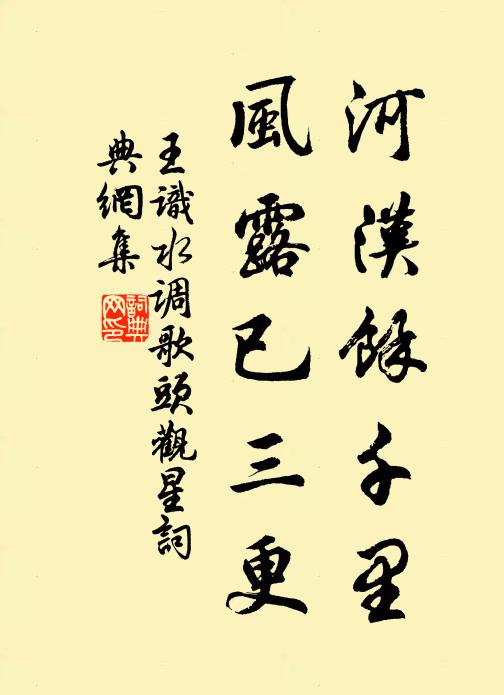 河漢餘千里
風露已三更
王識水调歌頭觀星詞
典網集
詞典网印